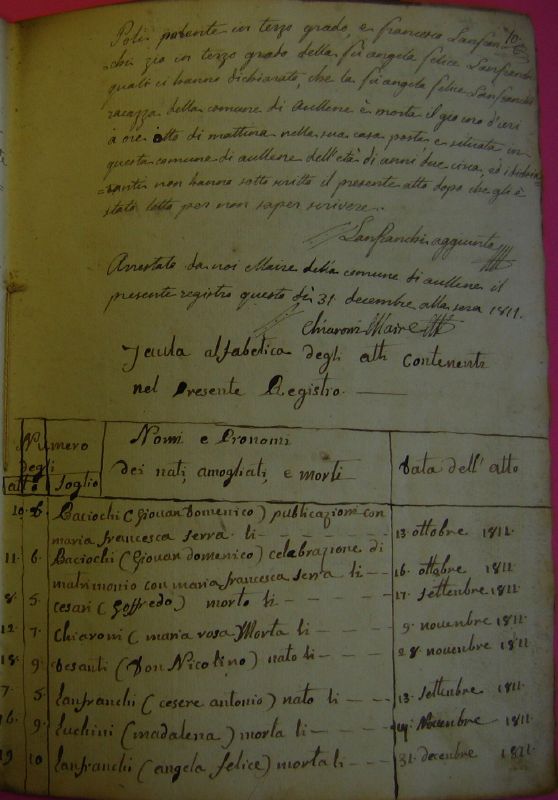 10.
Poli parente in terzo grado, e francesco Lanfran=
=chi zio in terzo grado della fù angela felice Lanfranchi
quali ci hanno dichiarato, che la fù angela felice Lanfranchi
ragazza della comune di Aullene è morta il giorno d'ieri
à ore otto di mattina nella sua casa posta e situata in
questa comune di aullene dell'età di anni due circa, ed i dichia=
=ranti non hanno sotto scritto il presente atto dopo che gli è
stato letto per non saper scrivere.
Lanfranchi aggiunto
Arrestato da noi Maire della comune di aullene il
presente registro questo dì 31. decembre alla sera 1811.
Chiaroni Maire
Tavola alfabetica degli atti Contenenti
nel Presente Registro.
Numero degli
atto foglio
Nomi e Pronomi
dei nati, amogliati, e morti
Data dell' atto
10. 6. Baciochi (Giovan Domenico) publicazioni con
maria francesca serra li — 13. ottobre 1811.
11. 6. Baciochi (Giovan domenico) celebrazione di
matrimonio con maria francesca serra li — 16. ottobre 1811.
8. 5. Cesari (Goffredo) morto li — 17. settembre 1811.
12. 7. Chiaroni (maria rosa) Morta li — 9. novembre 1811.
18. 9. Desanti (Don Nicolino) nato li — 28. novembre 1811.
7. 5. Lanfranchi (cesere antonio) nato li — 13. settembre 1811.
16. 9. Luchini (madalena) morta li — Novembre 1811.
19 10 Lanfranchi (angela felice) morta li — 31. decembre 1811.